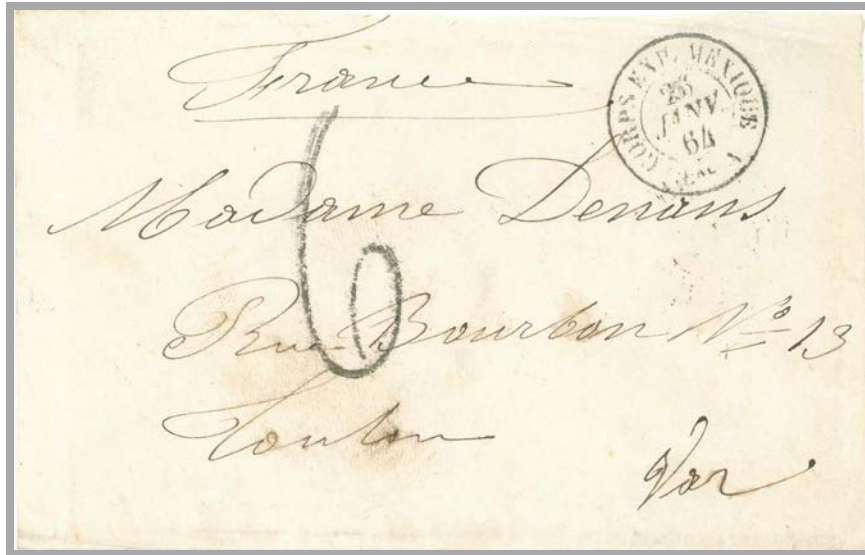 France
CORPS EXP. MEXIQUE
JANV.
64
6
Madame Denans
Rue Bourbon No 13
Toulon
Var